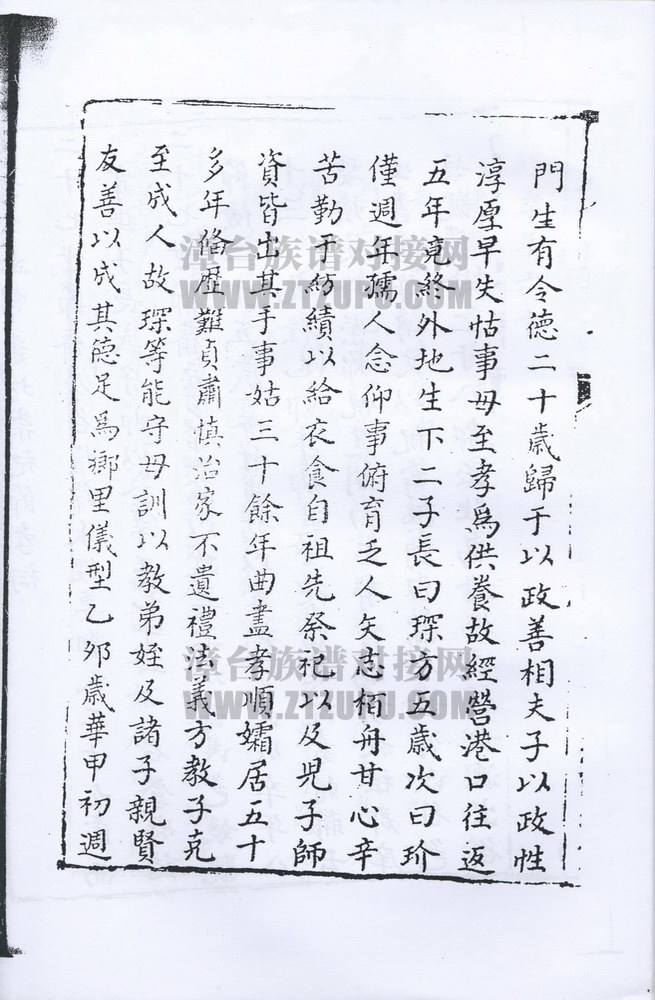 門生有令德二十歲歸于以政善相夫子以政性
淳厚早失怙事母至孝爲供養故經營港口往返
五年竟終外地生下二子長曰琛方五歲次曰玠
僅週年孺人念仰事俯育乏人矢志栢舟甘心辛
苦勤于紡績以給衣食自祖先祭祀以及児子師
資皆出其手事姑三十餘年曲盡孝順孀居五十
多年俻歷難貞肅慎治家不遺禮法義方教子克
至成人故琛等能守母訓以教弟姪及諸子親賢
友善以成其德足爲鄉里儀型乙夘歲華甲初週
漳台族谱对接网
WWW.ZTZUPU.COM
漳台族谱对接网
WWW.ZTZUPU.COM